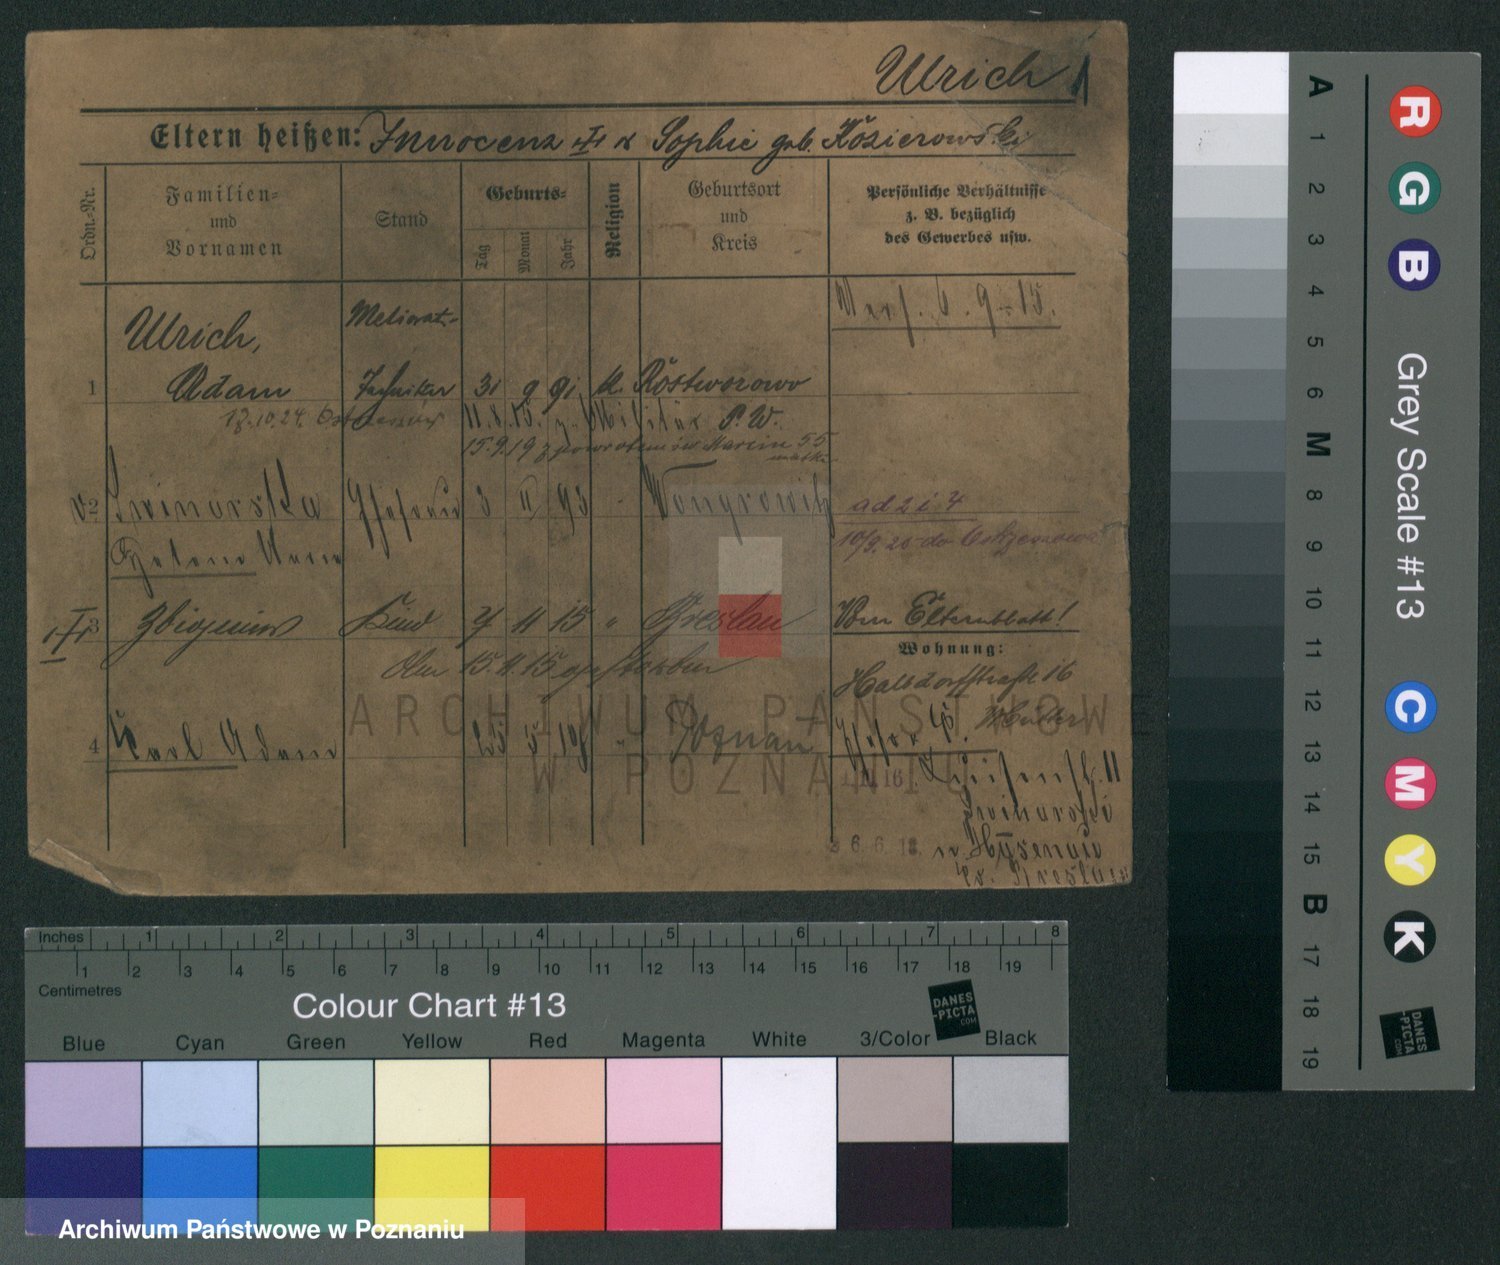 Ulrich 1
Eltern heißen: Innocenz † & Sophie geb. Kozierowski
Ordn.-Nr.
Familien-
und
Vornamen
Stand
Geburts-
Tag
Monat
Jahr
Religion
Geburtsort
und
Kreis
Persönliche Verhältnisse
z. B. bezüglich
des Gewerbes usw.
6. 9. 15.
Ulrich,
Meliorat.-
1 Adam Techniker 31 9 91 k. Rostworowo
11.8.15. z. Militär P. W.
15.9.19 z powrotem św Marcin 55
matka
v. 2 Ehefrau 3 II 93 - Wongrowitz
ad 2 i 4
3 Zbigniew Kind 7 11 15 " Breslau
Vom Elternblatt!
Am 15.11.15 gestorben
Wohnung:
Halbdorfstraße 16
4 Karl Adam 25 5 18 " Poznań
Mutter
1.11.16
6.6.18.
ARCHIWUM PAŃSTWOWE
W POZNANIU
Inches 1 2 3 4 5 6 7 8
1 2 3 4 5 6 7 8 9 10 11 12 13 14 15 16 17 18 19
Centimetres
Colour Chart #13
DANES
-PICTA
.COM
Blue Cyan Green Yellow Red Magenta White 3/Color Black
Archiwum Państwowe w Poznaniu
A 1 2 3 4 5 6 M 8 9 10 11 12 13 14 15 B 17 18 19
Grey Scale #13
R G B
C M Y K
DANES
-PICTA
.COM